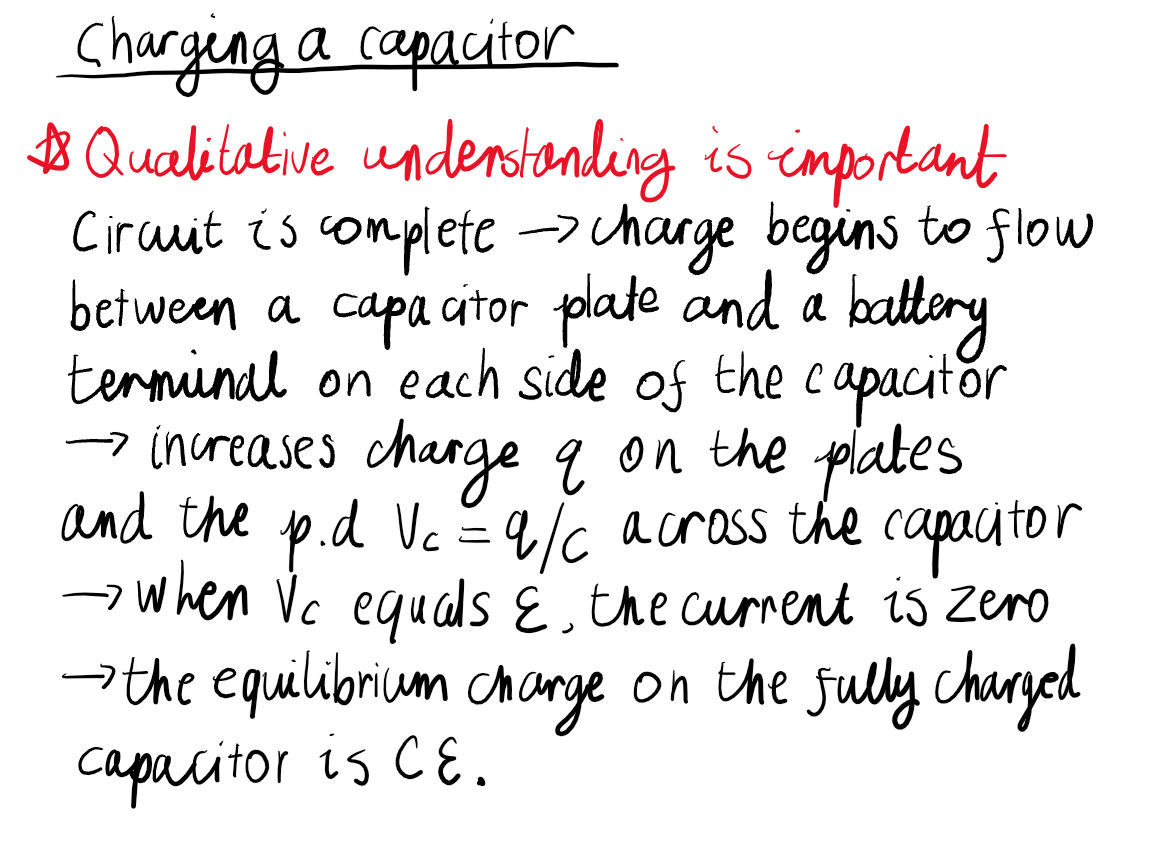 Charging a capacitor
☆ Qualitative understanding is important
Circuit is complete → charge begins to flow
between a capacitor plate and a battery
terminal on each side of the capacitor
→ increases charge q on the plates
and the p.d Vc = q/c across the capacitor
→ when Vc equals ε, the current is zero
→ the equilibrium charge on the fully charged
capacitor is Cε.